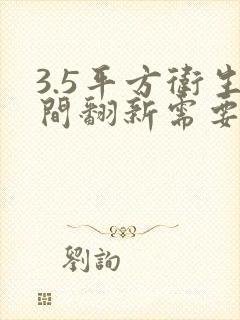 3.5平方衛生
間翻新需要
劉詢